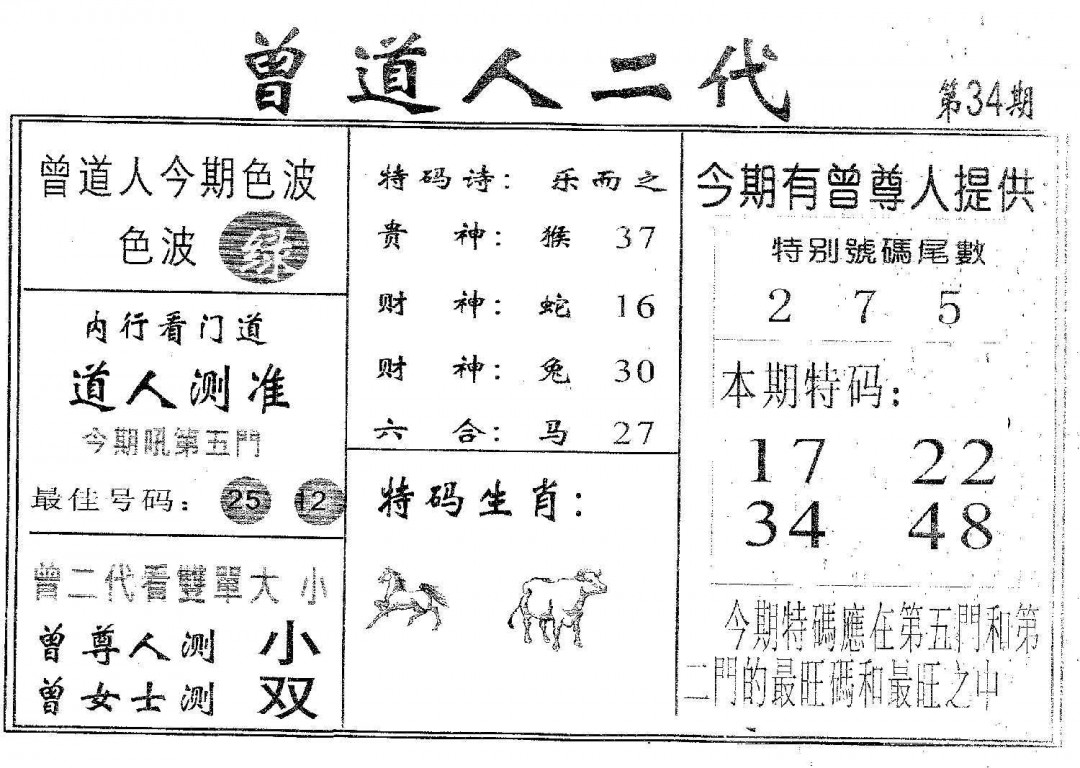 曾道人二代
第34期
曾道人今期色波
色波 绿
内行看门道
道人测准
今期吼第五門
最佳号码: 25 12
曾二代看雙單大小
曾尊人测 小
曾女士测 双
特码诗: 乐而之
贵神: 猴 37
财神: 蛇 16
财神: 兔 30
六合: 马 27
特码生肖:
今期有曾尊人提供
特别號碼尾數
2 7 5
本期特码:
17 22
34 48
今期特碼應在第五門和第
二門的最旺碼和最旺之中